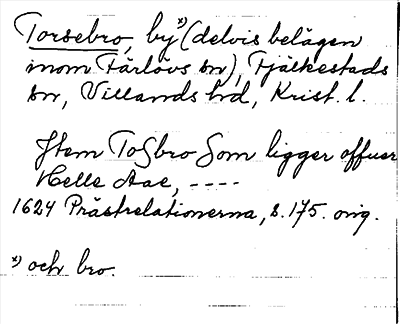 Torsebro, by *) (delvis belägen
inom Färlövs sn), Fjälkestads
sn, Villands hd, Krist. l.
Jtem Toßbro Som ligger offuer
Helle Aae, ----
1624 Prästrelationerna, s. 175. orig.
*) och bro.